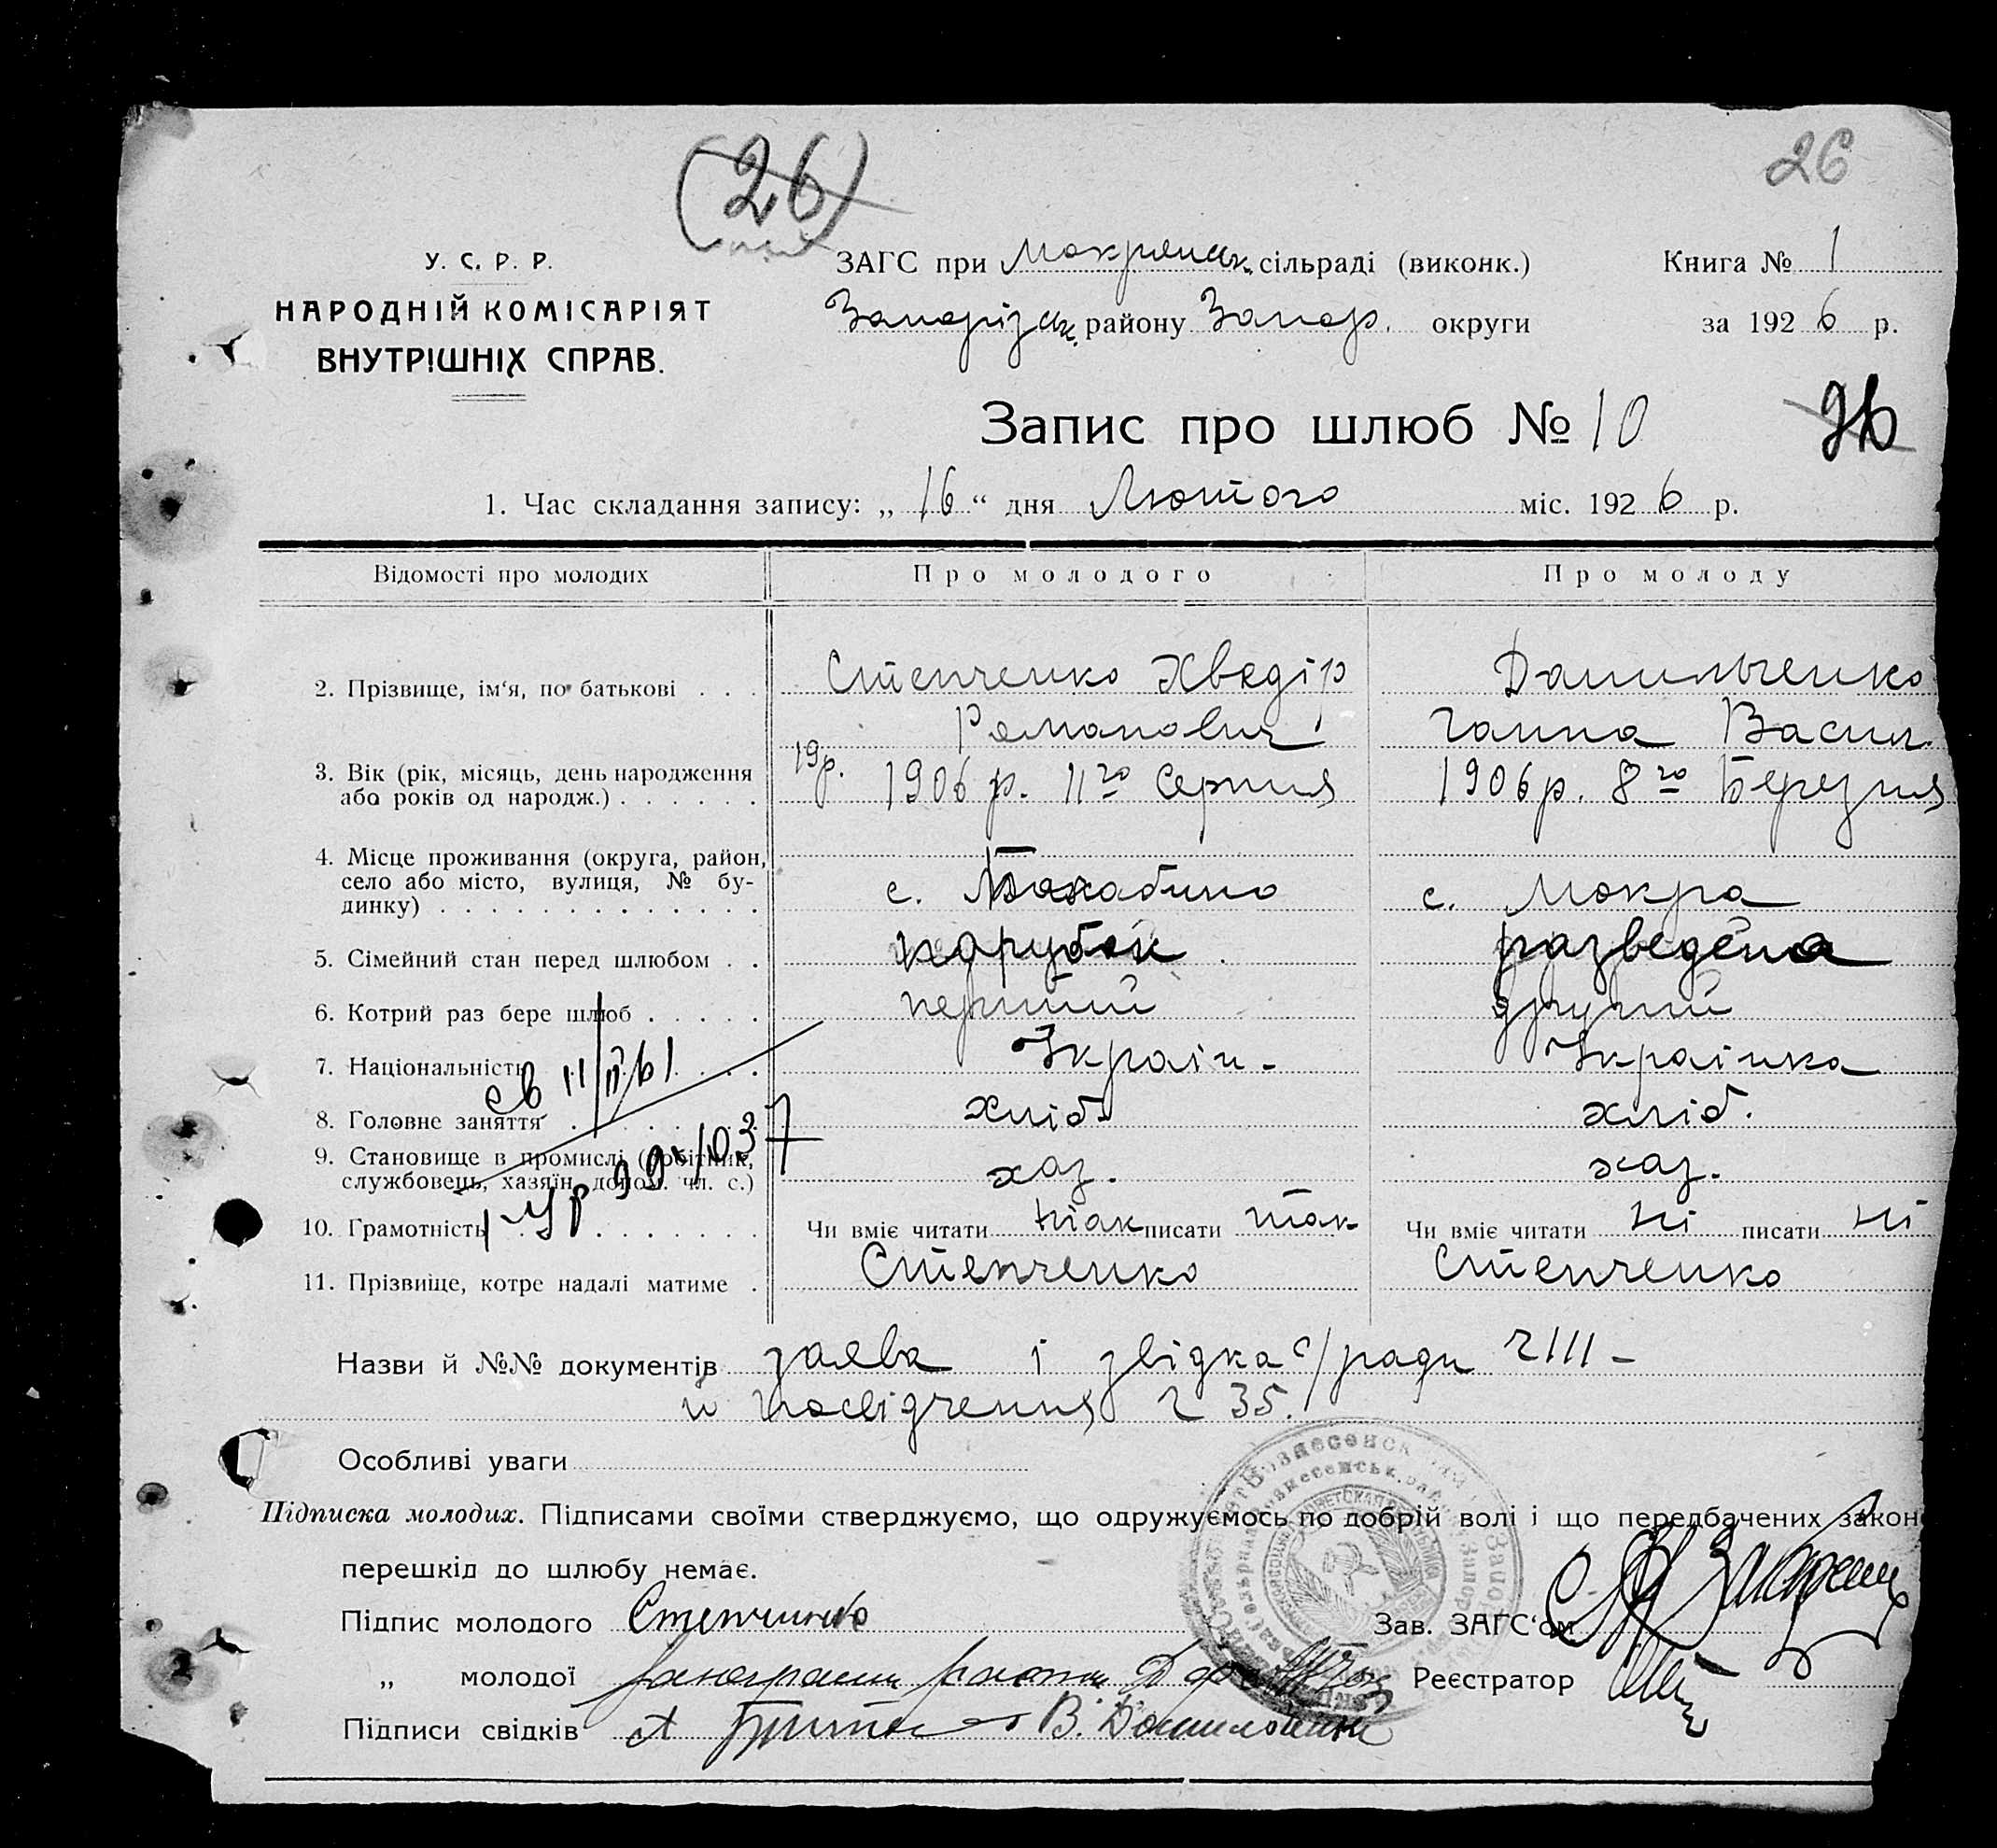 (26)
26
У. С. Р. Р.
НАРОДНІЙ КОМІСАРІЯТ
ВНУТРІШНІХ СПРАВ.
ЗАГС при Мокрянськ. сільраді (виконк.)
Книга № 1
Запорізьк. району Запор. округи
за 1926 р.
Запис про шлюб № 10
1. Час складання запису: „ 16 “ дня Лютого міс. 1926 р.
Відомості про молодих Про молодого Про молоду
2. Прізвище, ім‘я, по батькові . . . Степченко Хведір Данильченко
Романович Ганна Васил.
3. Вік (рік, місяць, день народження 19р. 1906 р. 11го Серпня 1906 р. 8го Березня
або років од народж.) . . . . . .
4. Місце проживання (округа, район,
село або місто, вулиця, № бу- с. с. Мокра
динку) . . . . . . . . . . . . .
5. Сімейний стан перед шлюбом . . парубок разведена
6. Котрий раз бере шлюб . . . . . перший другий
7. Національність . . . . Україн - Українка
8. Головне заняття . . . . . хліб. хліб.
9. Становище в промислі (робітник, хаз. хаз.
службовець, хазяїн, допом. чл. с.)
10. Грамотність . . . . . . . Чи вміє читати так писати так Чи вміє читати ні писати ні
11. Прізвище, котре надалі матиме . Степченко Степченко
Назви й №№ документів заява і звідка с/ради
и посвідчення ч 35.
Особливі уваги
Підписка молодих. Підписами своїми стверджуємо, що одружуємось по добрій волі і що передбачених закон
перешкід до шлюбу немає.
Підпис молодого Степчинко
Зав. ЗАГС‘ом
„ молодої
Реєстратор
Підписи свідків В. Данильченко